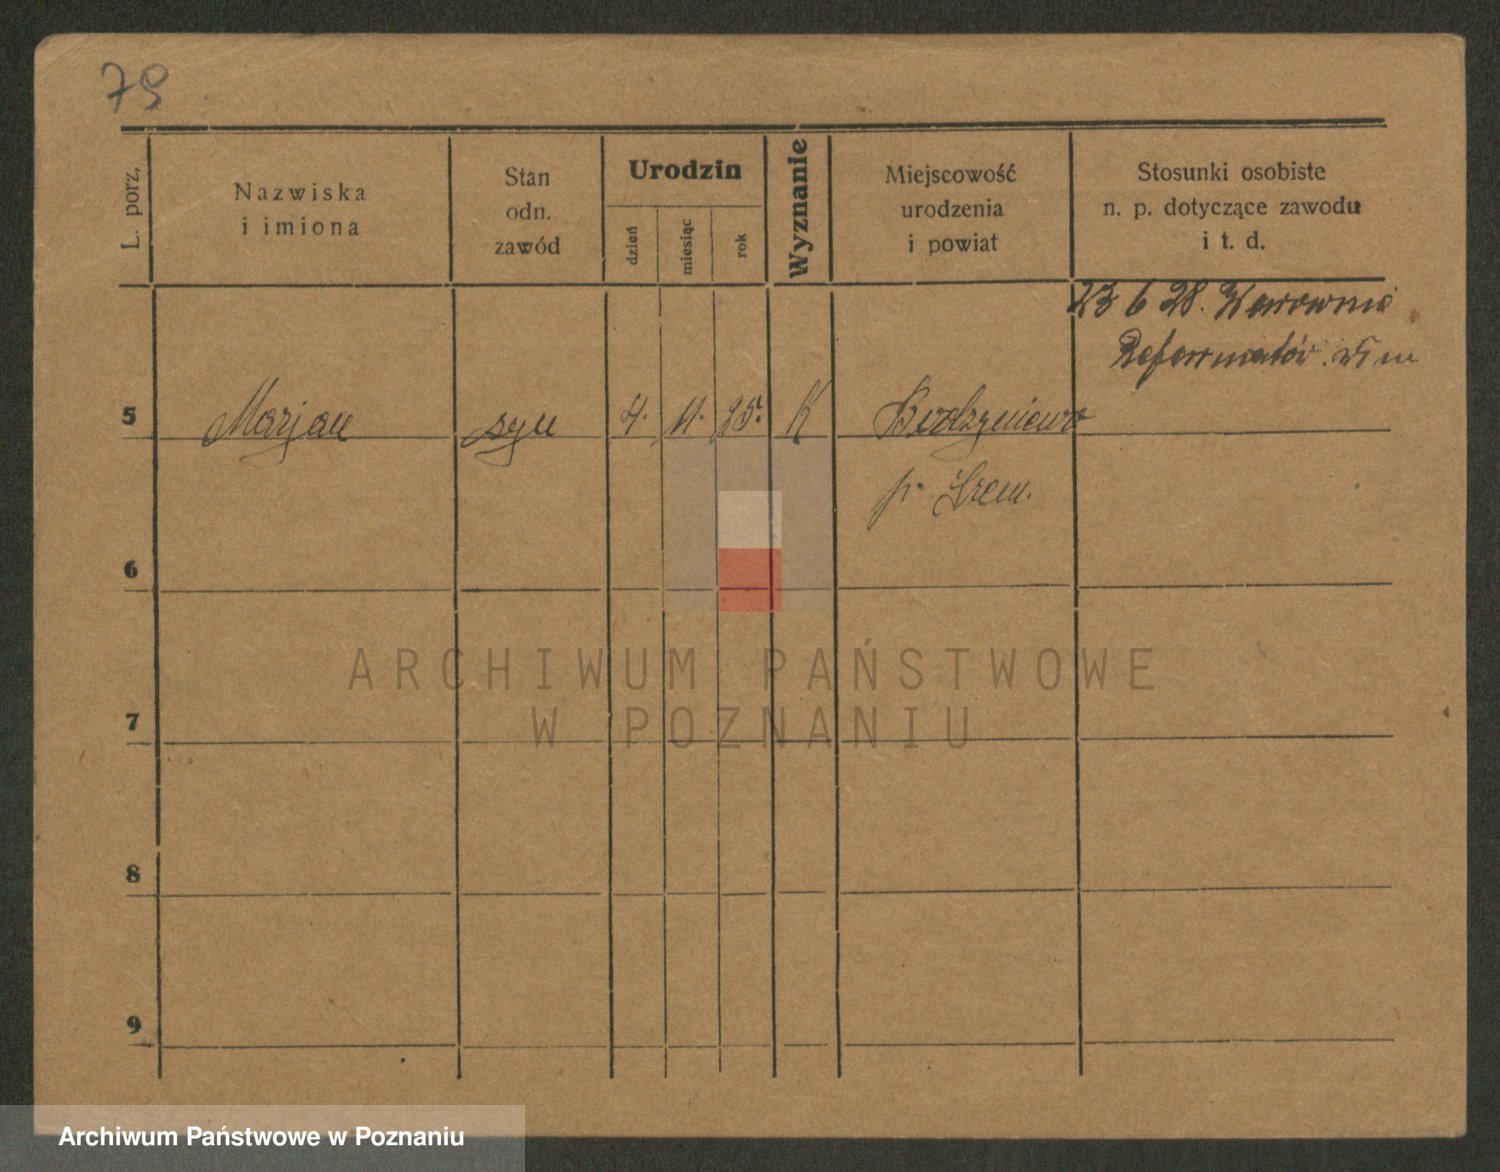 79
L. porz.
Nazwiska
i imiona
Stan
odn.
zawód
Urodzin
dzień
miesiąc
rok
Wyznanie
Miejscowość
urodzenia
i powiat
Stosunki osobiste
n. p. dotyczące zawodu
i t. d.
23 6 28. Warownia
Reformatów. w m
5 Marjan syn 4. 11. 25. K Bodzyniewo
p. Śrem.
6
7
8
9
ARCHIWUM PAŃSTWOWE
W POZNANIU
Archiwum Państwowe w Poznaniu